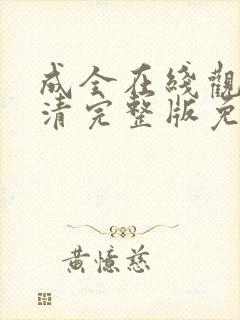 成全在綫觀
清完整版免
黃憶慈